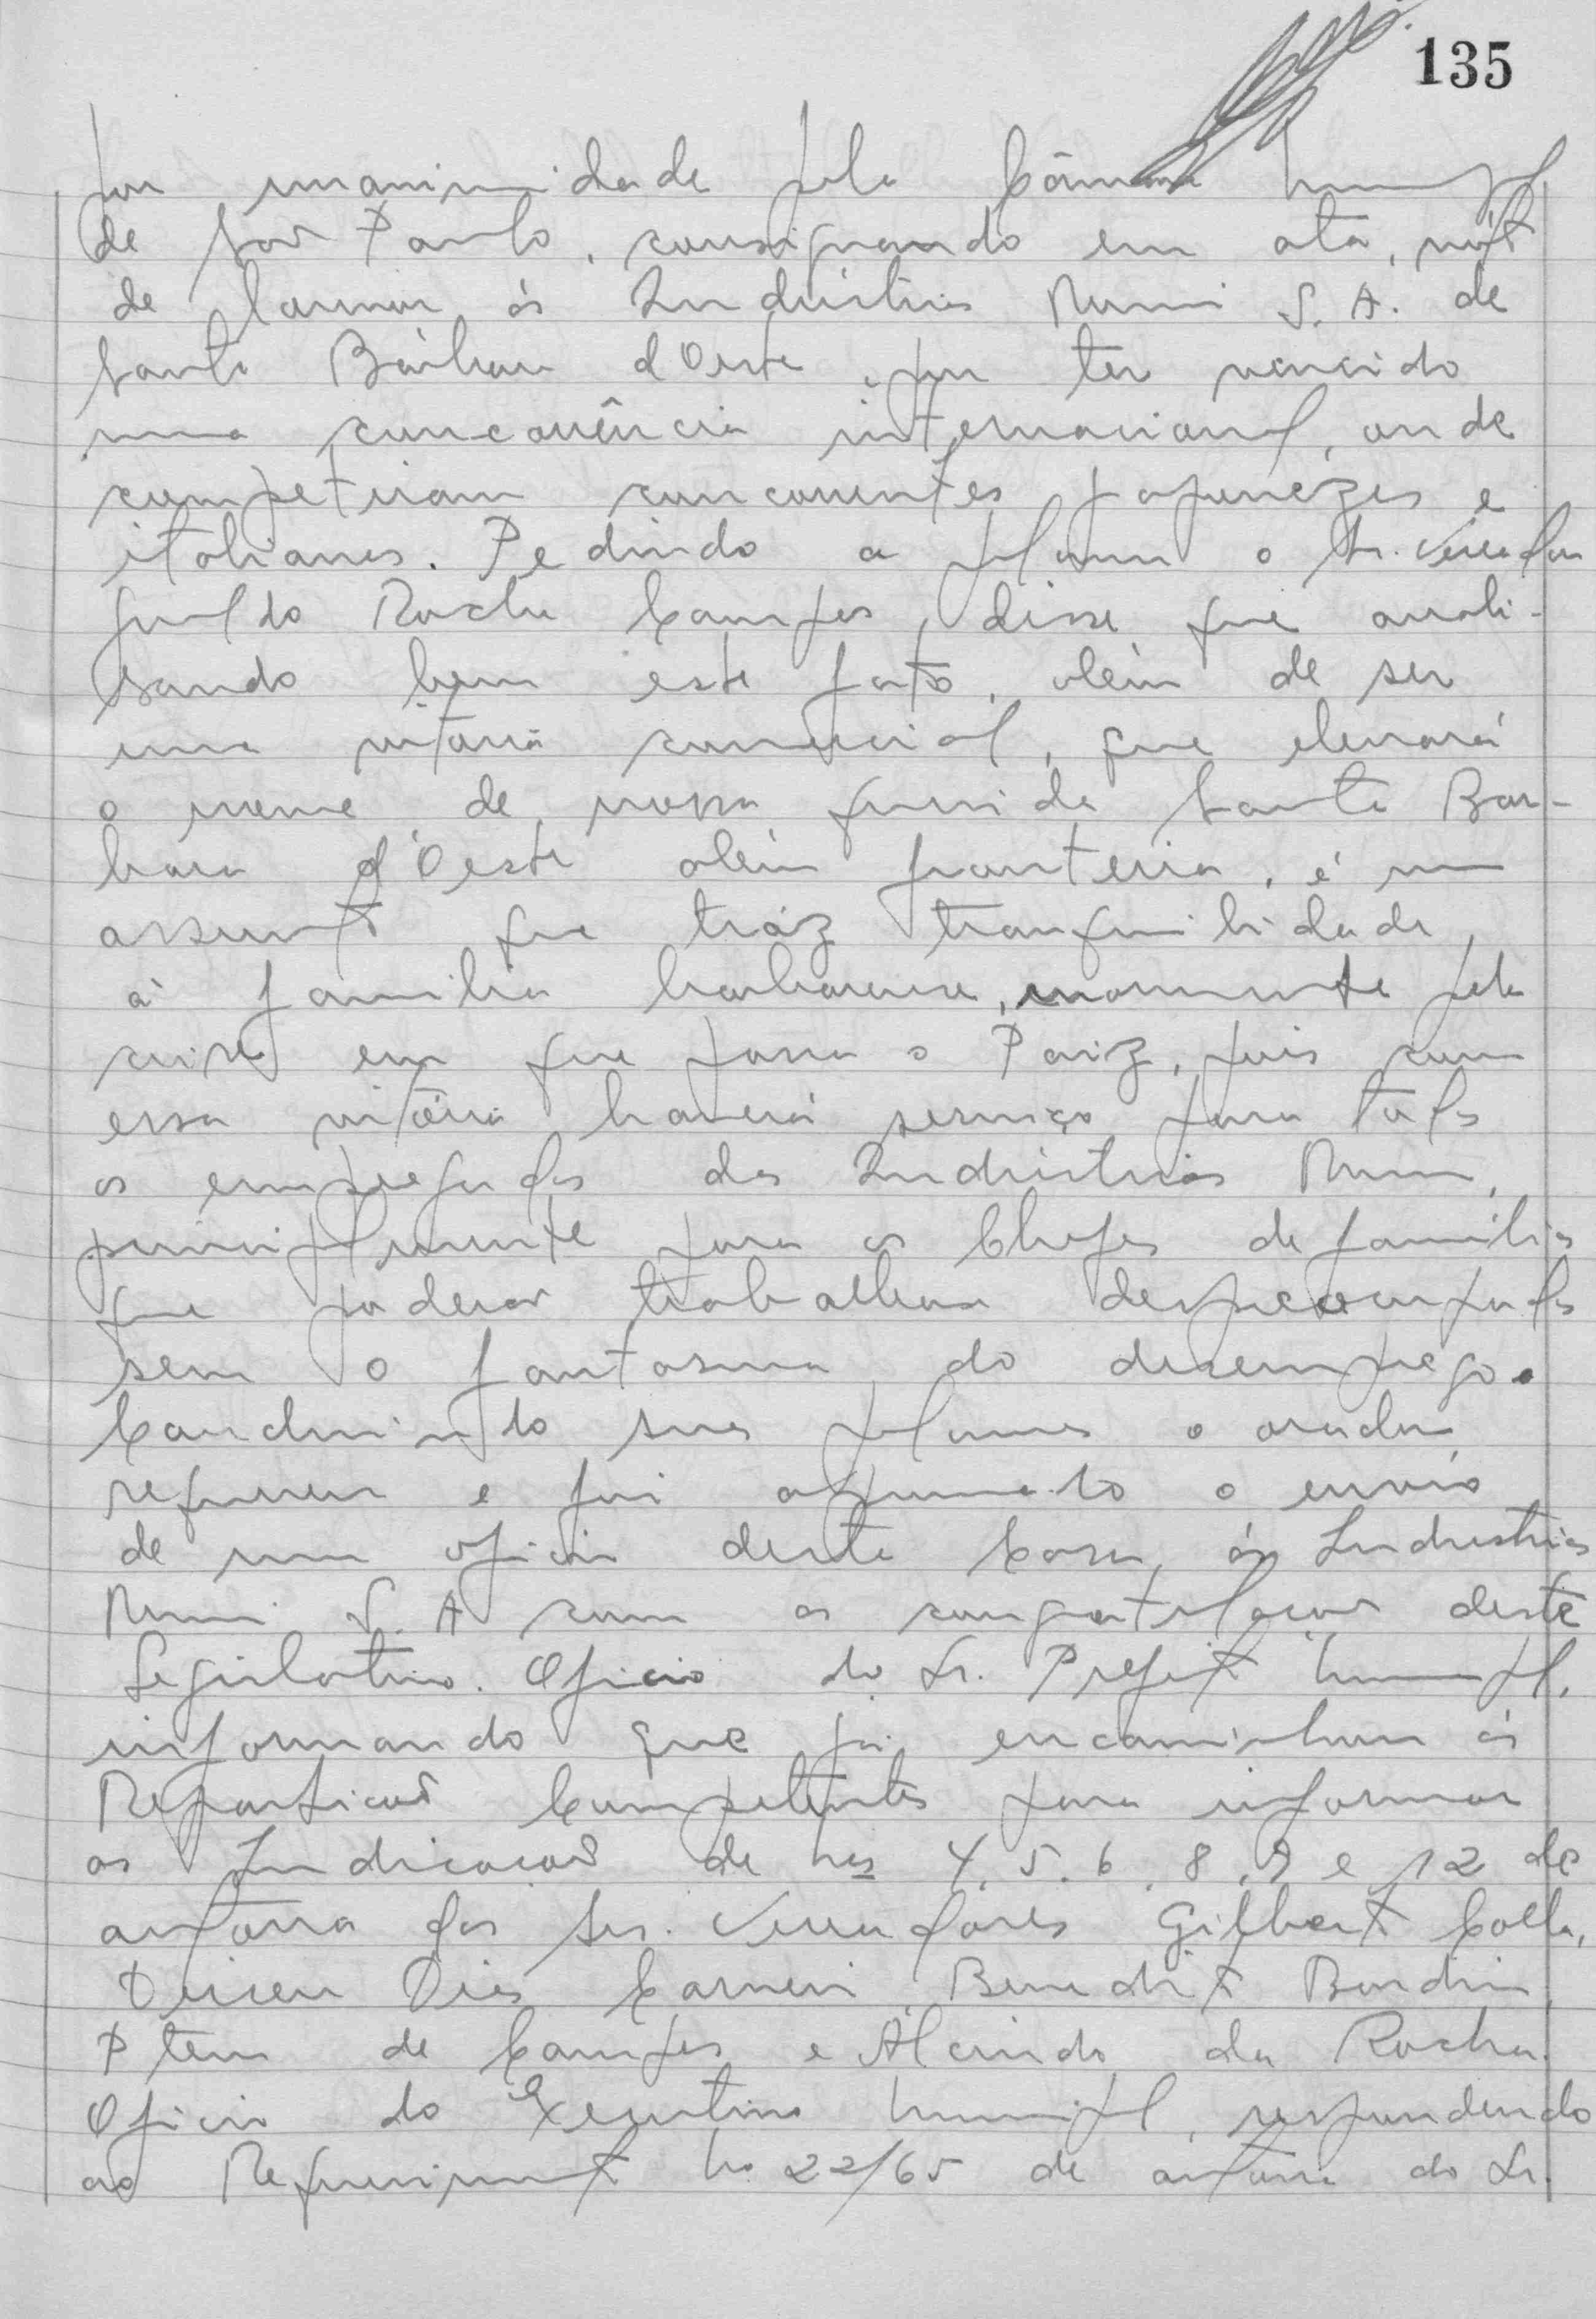 135
por unanimidade pela Câmara Municipal
de Sao Paulo, consignando em ata, voto
de louvor ás Indústrias Romi S. A. de
Santa Bárbara d'Oeste, por ter vencido
uma concorrência internacional, onde
competiram concorrentes japonezes e
italianos. Pedindo a palavra o Sr. Vereador
Geraldo Rocha Campos, disse que anali-
sando bem este fato, além de ser
uma vitória comercial, que elevará
o nome de nossa querida Santa Bar-
bara d'Oeste além fronteira, é um
assunto que tráz tranquilidade
á familia barbarense, mormente pela
crise em que passa o Paiz, pois com
essa vitória haverá serviço para todos
os empregados das Indústrias Romi,
principalmente para os Chefes de familias
que poderao trabalhar despreocupados
sem o fantasma do desemprego.
Concluindo suas palavras o orador
requereu e foi aprovado o envio
de um oficio desta Casa, ás Industrias
Romi S. A com as congratulaçoes deste
Legislativo. Oficio do Sr. Prefeito Municipal,
informando que já encaminhou ás
Repartiçoes Competentes para informar
as Indicaçoes de nos 4, 5, 6, 8, 9 e 12 de
autoria dos Srs. Vereadores Gilberto
Dirceu Dias Carneiro Benedito
de Campos e Alcindo da Rocha.
Oficio do Executivo Municipal, respondendo
ao Requerimento no 22/65 de autoria do Sr.